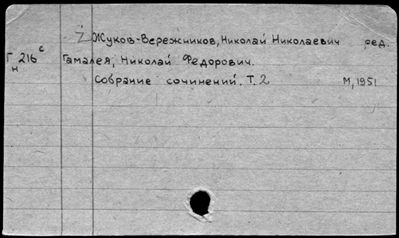 Z Жуков-Вережников, Николай Николаевич ред.
Г 216 с Гамалея, Николай Федорович.
н
Собрание сочинений. Т. 2 М, 1951